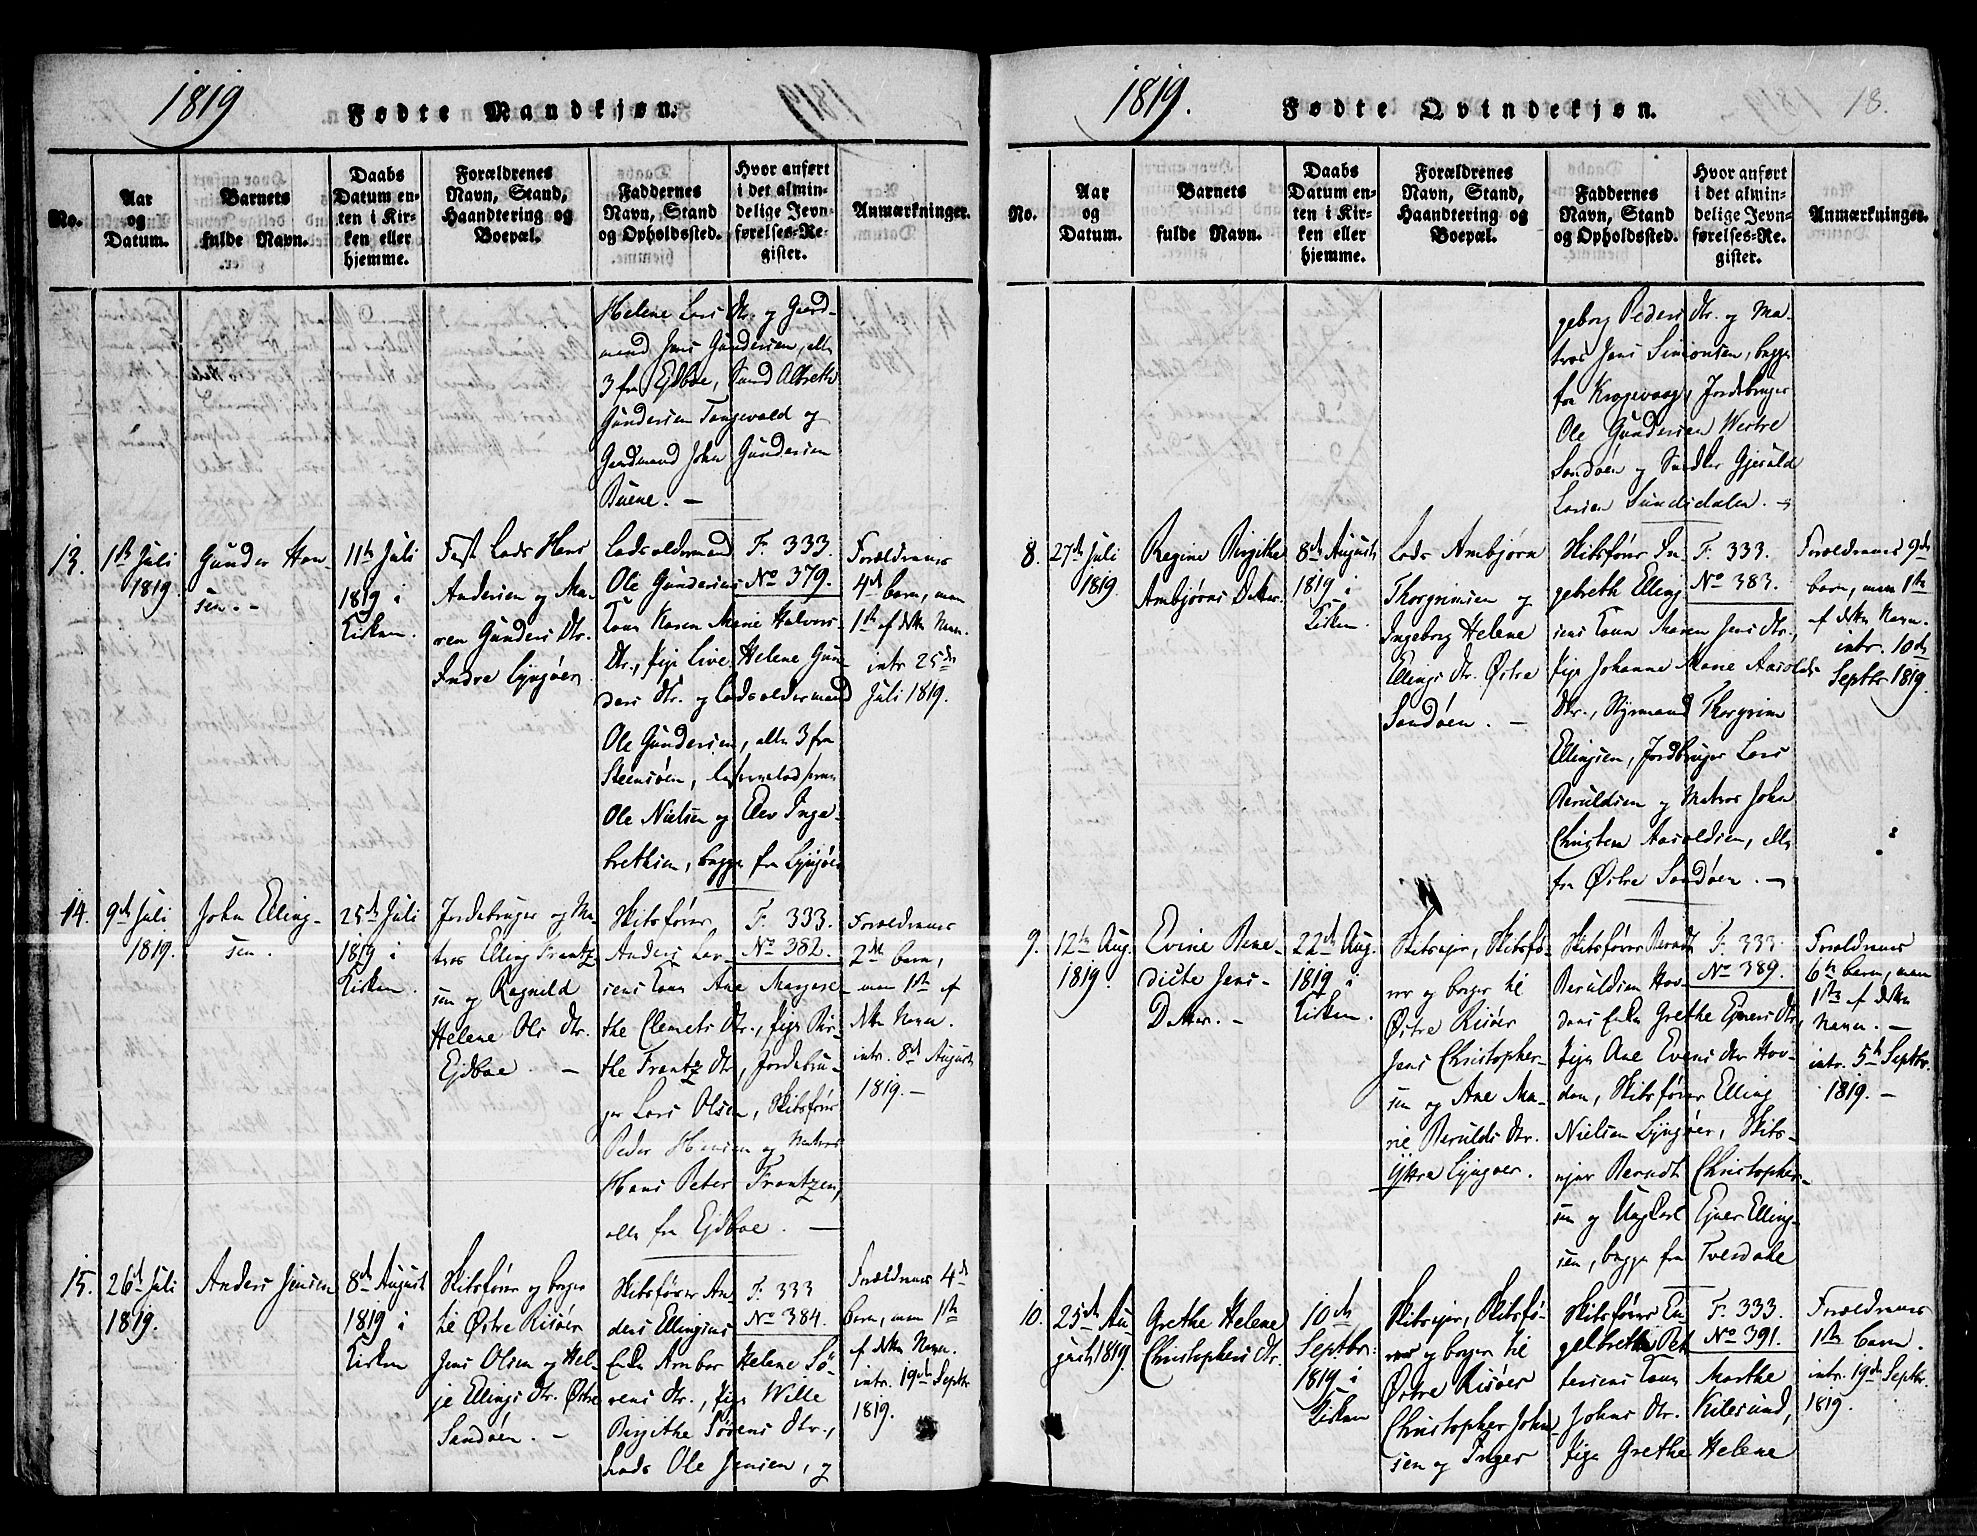 1819
Fødte Mandkjøn.
No.
Aar
og
Datum.
Barnets
fulde Navn.
Daabs
Datum en-
ten i Kir-
ken eller
hjemme.
Forældrenes
Navn, Stand,
Haandtering og
Boepæl.
Faddernes
Navn, Stand
og Opholdssted.
Hvor anført
i det almin-
delige Jevn-
førelses-Re-
gister.
Anmærkninger.
Helene Lars Dtr. og Gaard-
mand Jens Gundersen, alle
3 fra Ejdboe, Albreth
Gundersen Tangevald og
Gaardmand John Gundersen
Buene. –
13.
1ste Juli
1819.
Gunder Han-
sen. –
11te Juli
1819 i
Kirken.
Fast Lods Hans
Andersen og Ma-
ren Gunders Dtr.
Indre Lyngøer.
Lodsoldermand
Ole Gundersens
Kone Karen Marie Halvors
Dtr., Pige Live Helene Gun-
ders Dtr. og Lodsoldermand
Ole Gundersen, alle 3 fra
Steensøen,
Ole Nielsen og Elev Inge-
brethsen, begge fra Lyngøer
F. 333.
No 379.
Forældrenes
4de barn, men
1ste af dette Navn.
intr. 25de
Juli 1819.
14.
9de Juli
1819.
John Elling-
sen.
25de Juli
1819 i
Kirken.
Jordebruger og Ma-
tros Elling Frantz-
sen og Ragnild
Helene Ols Dtr.
Ejdboe. –
Skibsfører
Anders Lar-
sens Kone Ane Margre-
the Clemets Dtr., Pige Bir-
the Frantz Dtr, Jordebru-
ger Lars Olsen, Skibsfører
Peder Hansen og Matros
Hans Peter Frantzen,
alle fra Ejdboe. –
F. 333.
No 382.
Forældrenes
2det barn,
men 1ste af
dette Navn.
intr. 8de Augusti
1819. –
15.
26de Juli
1819.
Anders Jensen
8de Augusti
1819 i
Kirken
Skibsfører og borger
til Østre Risøer
Jens Olsen og Hel-
je Ellings Dtr. Østre
Sandøen. –
Skibsfører An-
ders Ellingsens
Enke Ambor Helene Sö-
rens Dtr., Pige Wille
Birgithe Sørens Dtr.,
Lods Ole Jensen, og
F. 333
No 384.
Forældrenes 4de
barn, men 1ste
af dette Navn.
intr. 19de Septbr
1819.
1819.
Fødte Qvindekjøn.
18.
No.
Aar
og
Datum.
Barnets
fulde Navn.
Daabs
Datum en-
ten i Kir-
ken eller
hjemme.
Forældrenes
Navn, Stand,
Haandtering og
Boepæl.
Faddernes
Navn, Stand
og Opholdssted.
Hvor anført
i det almin-
delige Jevn-
førelses-Re-
gister.
Anmærkninger.
geborg Peders Dtr. og Ma-
tros Jens Simonsen, begge
fra Krogevaag, Jordebruger
Ole Gundersen Westre
Sandøen og Snedker Gjeruld
Larsen Sundsdalen. –
8.
27de Juli
1819.
Regine Birgithe
Ambjørns Datter.
8de Augusti
1819 i
Kirken.
Lods Ambjørn
Thorgrimsen og
Ingeborg Helene
Ellings Dtr. Østre
Sandøen. –
Skibsfører In-
gebreth Elling-
sens Kone Maren Jens Dtr.,
Pige Johanne Marie Aarolds
Dtr., Styrmand Thorgrim
Ellingsen, Jordbruger Lars
Beruldsen og Matros John
Christen Aaroldsen, alle
fra Østre Sandøen. –
F. 333.
No 383.
Forældrenes 9de
barn, men 1ste
af dette Navn.
intr. 10de
Septbr 1819.
9.
12te Aug.
1819.
Evine Bene-
dicte Jens-
Datter. –
22de Aug.
1819 i
Kirken.
Skibsejer, Skibsfø-
rer og borger til
Østre Risøer
Jens Christopher-
sen og Ane Ma-
rie Berulds Dtr.
Ydtre Lyngøer.
Skibsfører Berndt
Beruldsen Hov-
dens Enke Grethe Ejners Dtr,
Pige Ane Evens Dtr Hov-
den, Skibsfører Elling
Nielsen Lyngøer, Skibs-
ejer Berndt Christopher-
sen og Ung Karl Ejner Elling-
sen, begge fra Tverdahle
F. 333.
No 389.
Forældrenes
6te barn, men
1ste af dette
Navn. –
intr. 5te Septbr.
1819. –
10.
25de Au-
gusti 1819.
Grethe Helene
Christophers Dtr.
10de
Septbr.
1819 i
Kirken
Skibsejer, Skibsfø-
rer og borger til
Østre Risøer
Christopher John-
sen og Inger
Skibsfører En-
gelbreth Pet-
tersens Kone Marthe
Johns Dtr. Kilesund,
Pige Grethe Helene
F. 333.
No 391.
Forældrenes
1ste barn.
intr. 19de Septbr.
1819.